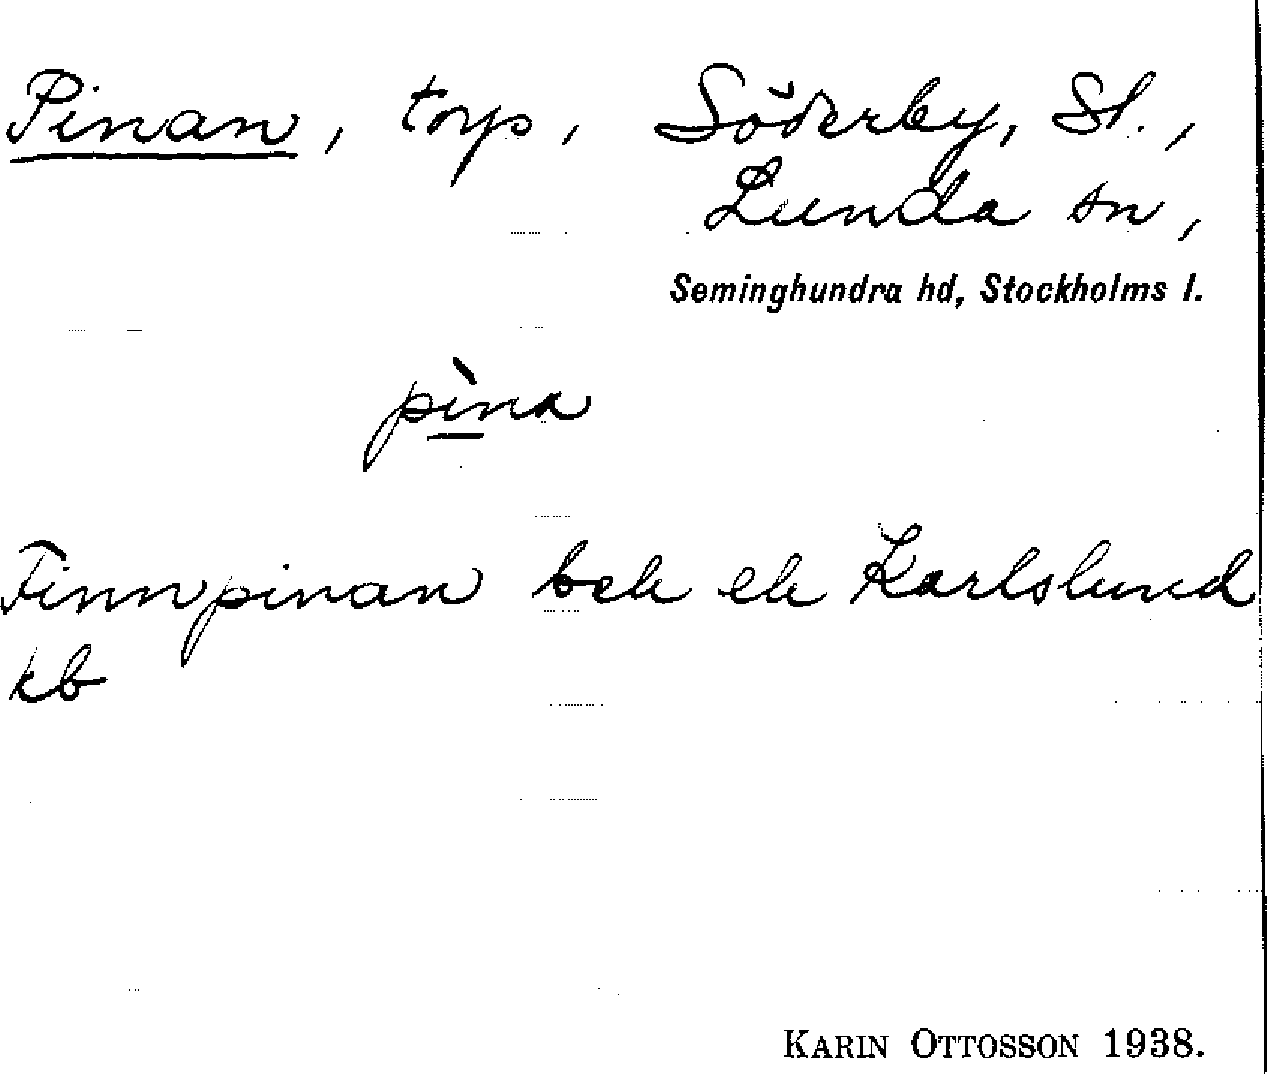 Pinan, torp, Söderby, St.,
Lunda sn,
Seminghundra hd, Stockholms l.
pìna
Finnpinan beh eh Karlslund
kb
KARIN OTTOSSON 1938.